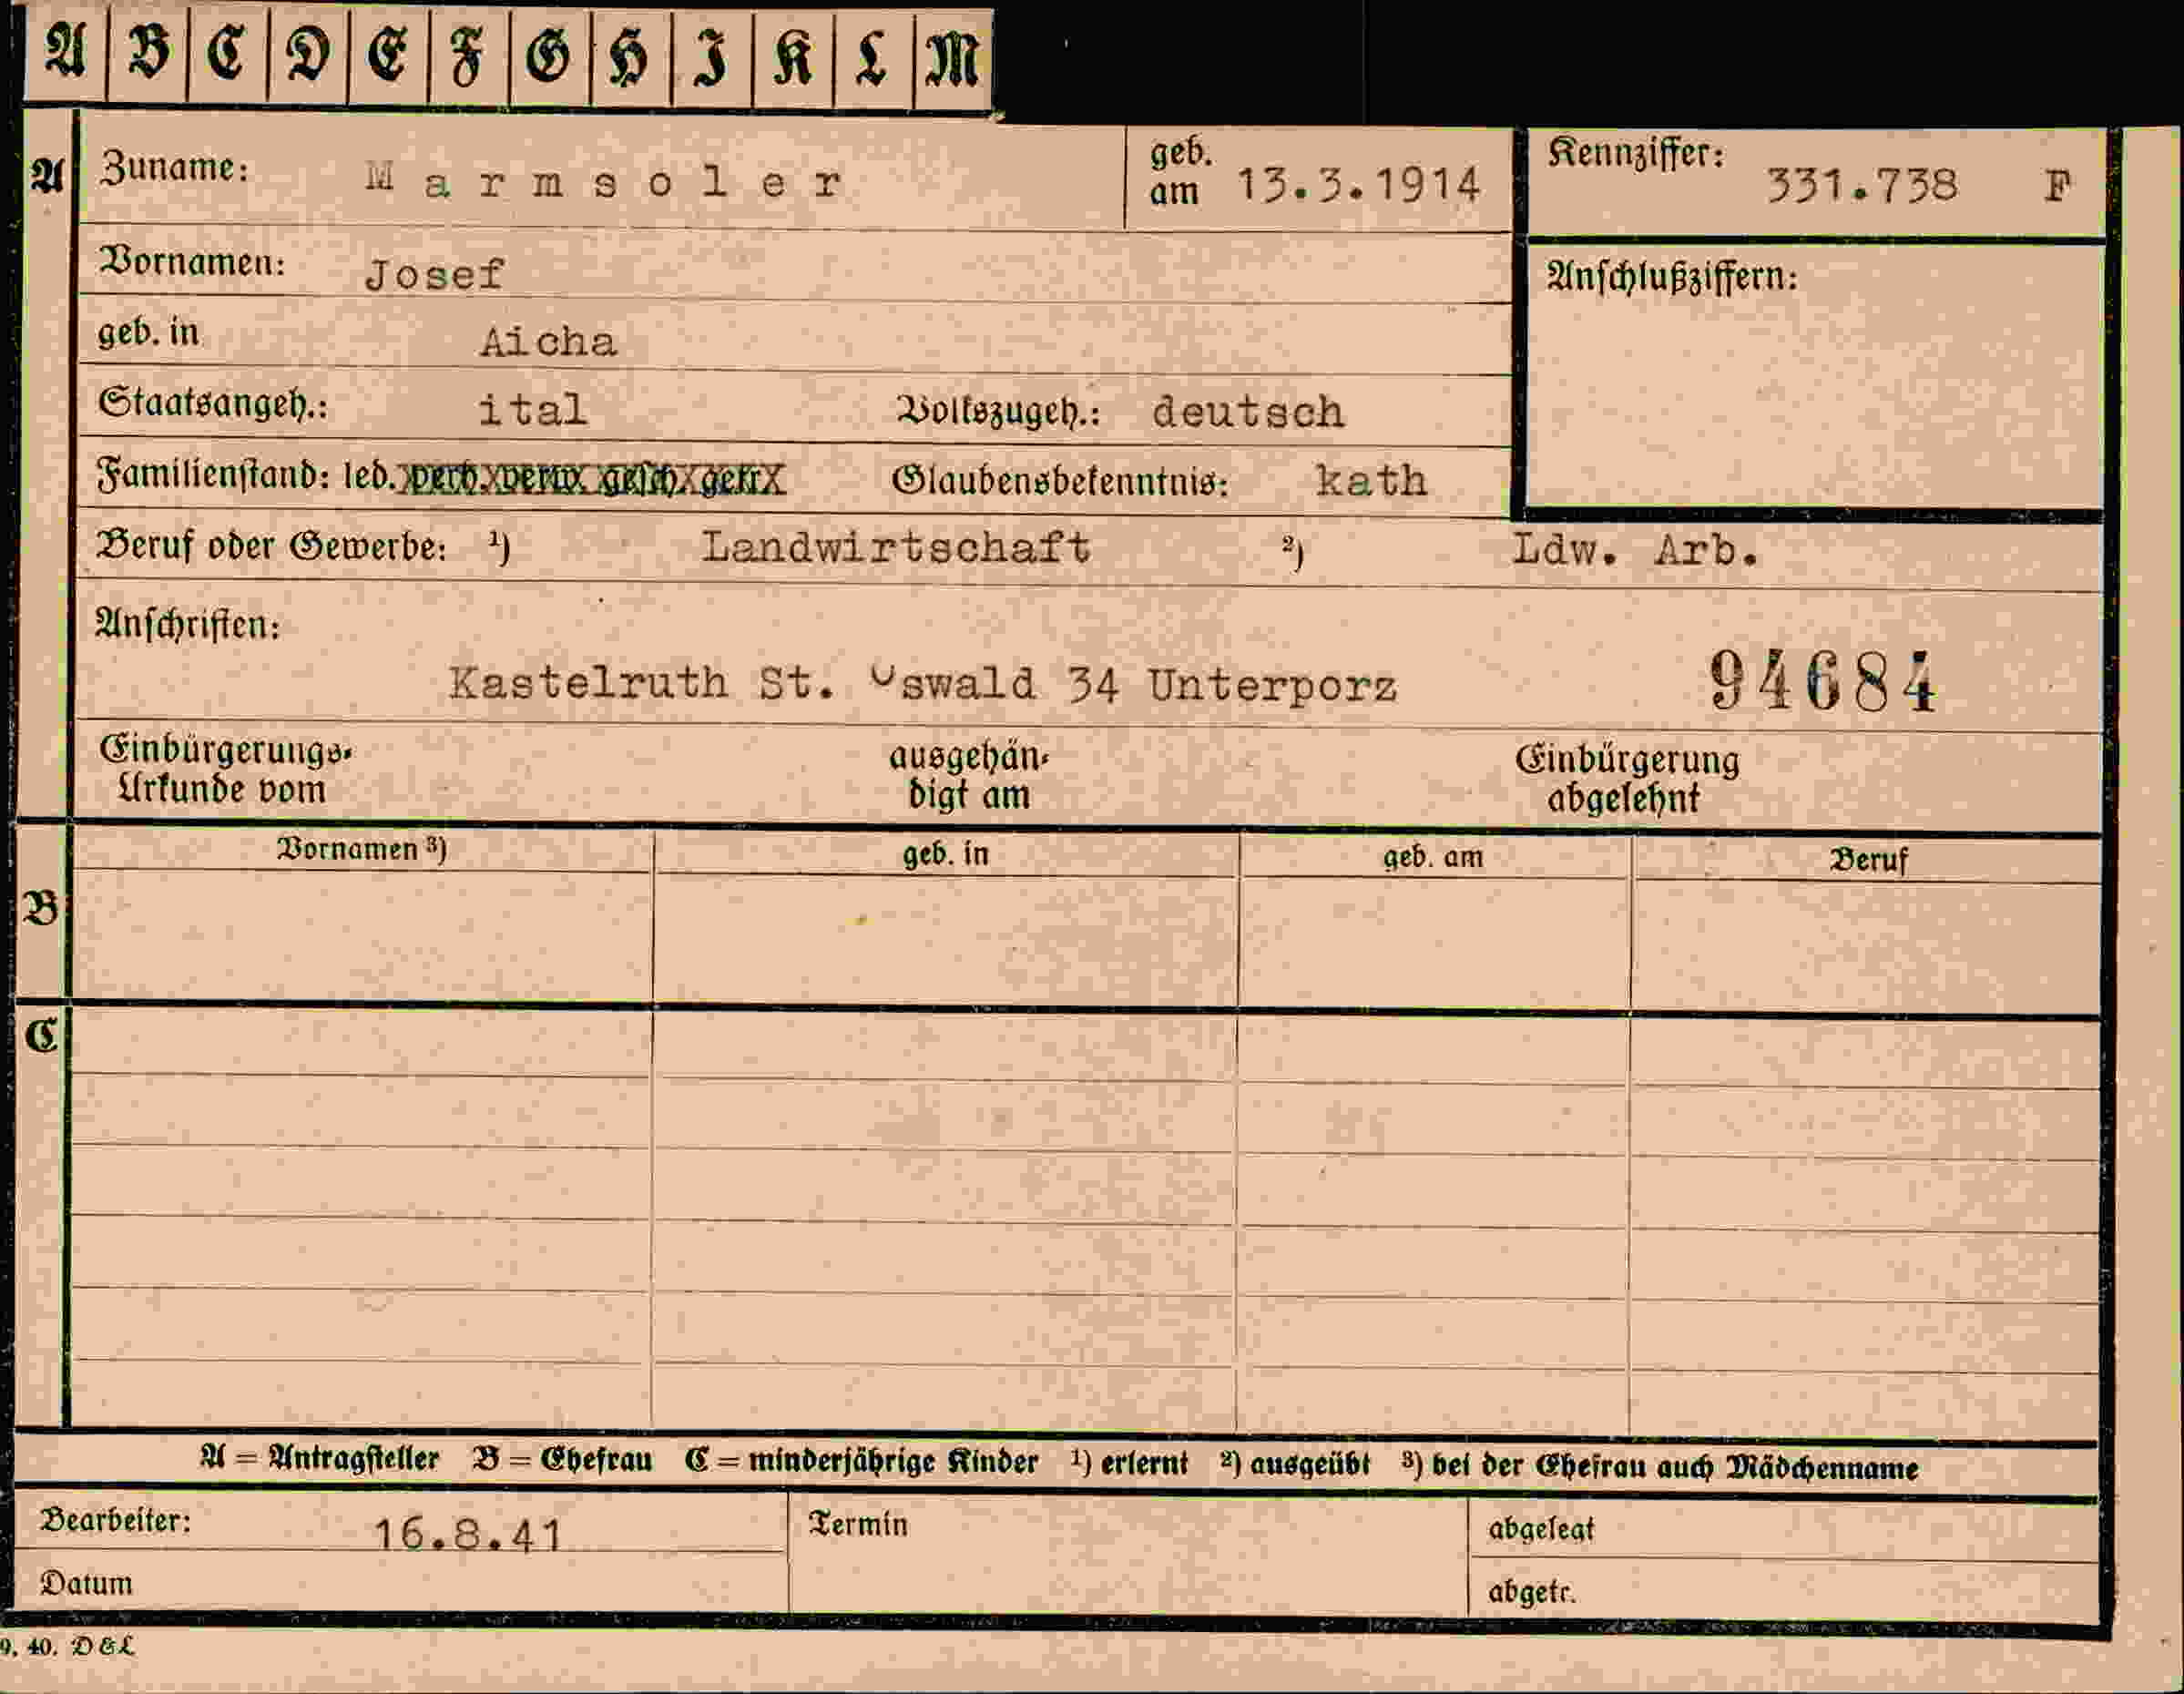 A B C D E F G H I K L M
A Zuname: Marmsoler geb. am 13.3.1914 Kennziffer: 331.738 F
Vornamen: Josef Anschlußziffern:
geb. in Aicha
Staatsangeh.: ital Volkszugeh.: deutsch
Familienstand: led. verh. verw. gesch. getr. Glaubensbekenntnis: kath
Beruf oder Gewerbe: ¹) Landwirtschaft ²) Ldw. Arb.
Anschriften:
Kastelruth St. Oswald 34 Unterporz 94684
Einbürgerungs- ausgehän- Einbürgerung
Urkunde vom digt am abgelehnt
Vornamen ³) geb. in geb. am Beruf
B
C
A = Antragsteller B = Ehefrau C = minderjährige Kinder ¹) erlernt ²) ausgeübt ³) bei der Ehefrau auch Mädchenname
Bearbeiter: 16.8.41 Termin abgelegt
Datum abgetr.
9. 40. D & L